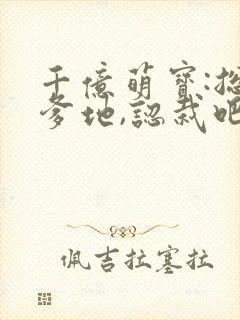 千億萌寶:總
爹地,認栽吧
佩吉拉塞拉